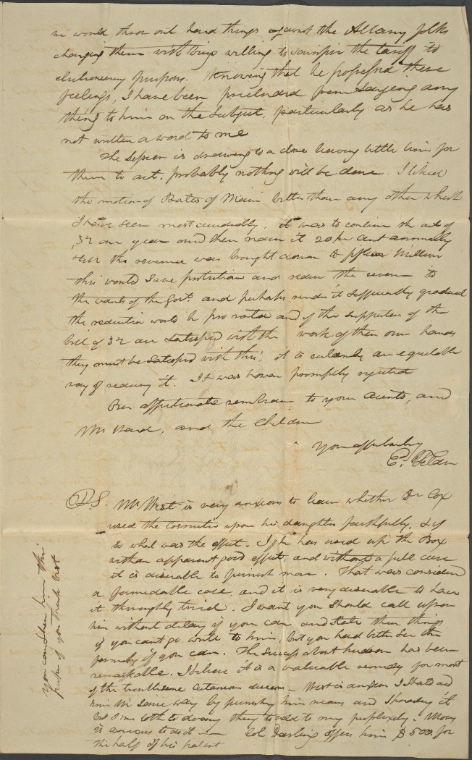 he would throw out hard things against the Albany folks
charging them with being willing to sacrifice the tariff to
electionary purposes. Knowing that he professed these
feelings, I have been from saying any
thing to him on the subject, particularly as he has
not written a word to me
The session is drawing to a close leaving little time for
them to act, probably nothing will be done. I liked
the motion of Bates of Maine better than any other which
I have seen most decidedly, it was to continue the act of
32 one year and then reduce it 20 per cent annually
the revenue was brought down to fifteen Millions
this would save protection and reduce the revenue to
the wants of the Govt. and perhaps render it sufficiently gradual
the reduction would be pro rata and if the supporters of the
bill of 32 are satisfied with the work of their own hands
they must be satisfied with this, it is certainly an equitable
way of reducing it. It was however promptly rejected
Our affectionate remembrance to your Aunts, and
Mr Ward, and the Children
Your affectionately
E. Tilden
P.S. Mr West is very anxious to learn whether Dr Cox
used the upon his daughter faithfully, & if
so what was the effect. If she has used up the Box
with apparent good effect, and without a full cure
it is desirable to furnish more. That was considered
a formidable case, and it is very desirable to have
it throughly tried. I want you should call upon
him without delay if you can and state these things
if you cant go write to him, but you had better see the
family if you can. The success about hudson has been
remarkable. I believe it is a valuable remedy for most
of the troublesome cutaneous diseases West is anxious I should aid
him in some way by furnishing him means and sharing it
but I am loth to doing they to add to my perplexity! Moory
is anxious to do it Col Darling offers him $500 for
the half of his patent
you can show him this
part of you think best